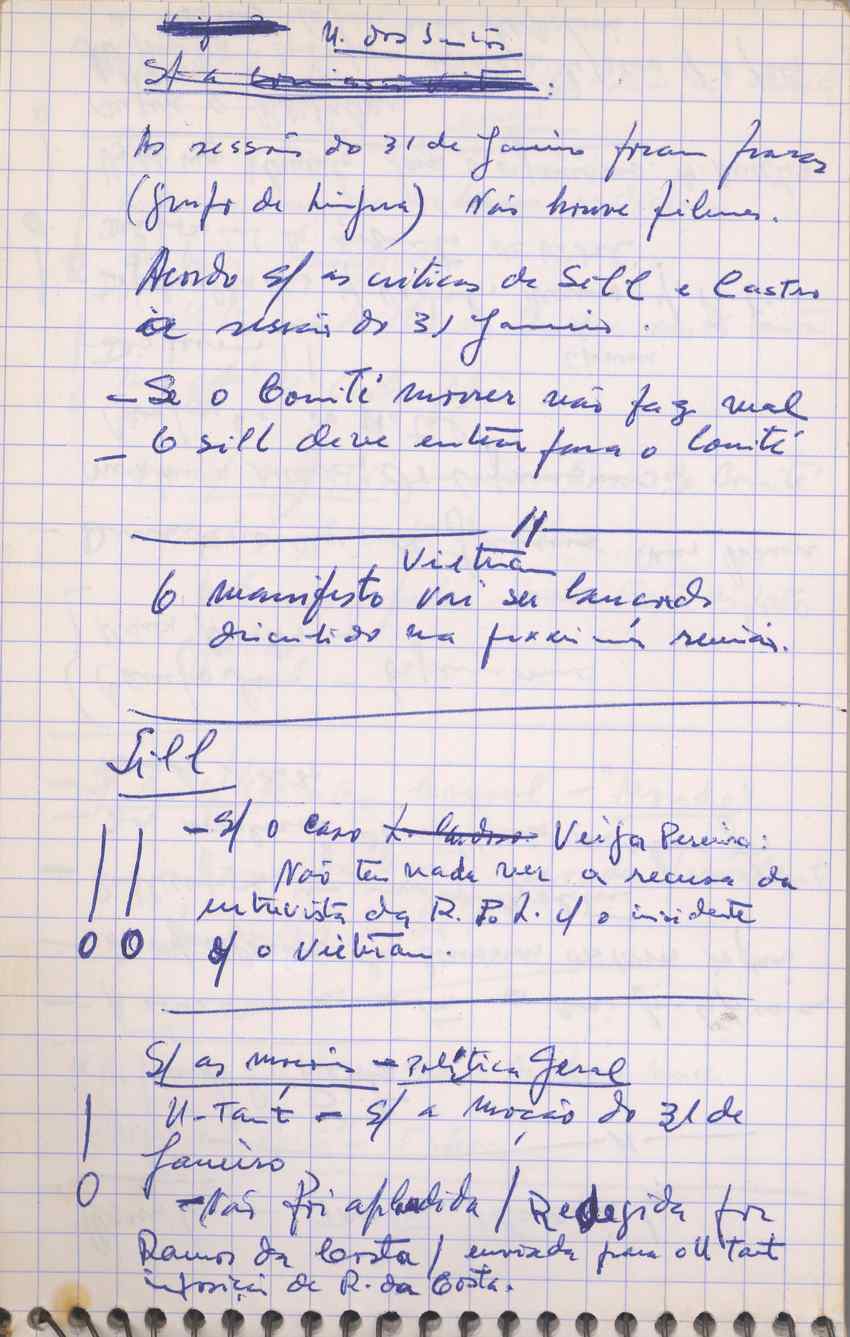 U. dos Santos
S/ a
As sessões do 31 de Janeiro foram fracas
(Grupo de Língua) Não houve filmes.
Acordo s/ as críticas de Sill e Castro
à sessão do 31 Janeiro.
- Se o Comité morrer não faz mal
- O Sill deve entrar para o Comité
Vietnam
O manifesto vai ser lançado
discutido na próxima reunião.
Sill
- S/ o caso Veiga Pereira:
Não tem nada ver a recusa da
entrevista da R. P. L. c/ o incidente
c/ o Vietnam.
S/ as moções - Política Geral
U-Tant - S/ a moção do 31 de
Janeiro
- Não foi aplaudida / Redegida por
Ramos da Costa / enviada para o U Tant
imposição de R. da Costa.